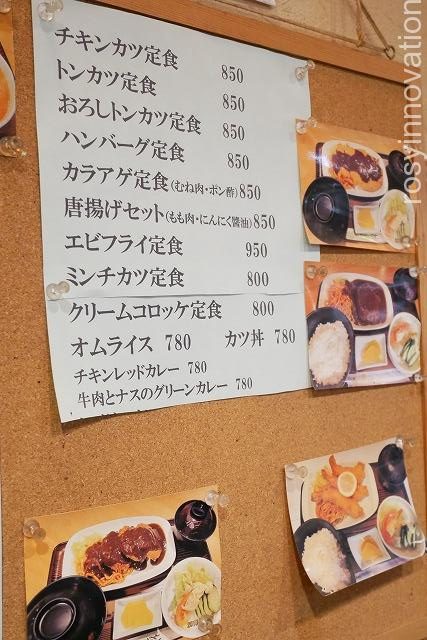 チキンカツ定食 850
トンカツ定食 850
おろしトンカツ定食 850
ハンバーグ定食 850
カラアゲ定食(むね肉・ポン酢) 850
唐揚げセット(もも肉・にんにく醤油) 850
エビフライ定食 950
ミンチカツ定食 800
クリームコロッケ定食 800
オムライス 780 カツ丼 780
チキンレッドカレー 780
牛肉とナスのグリーンカレー 780
rosyinnovation